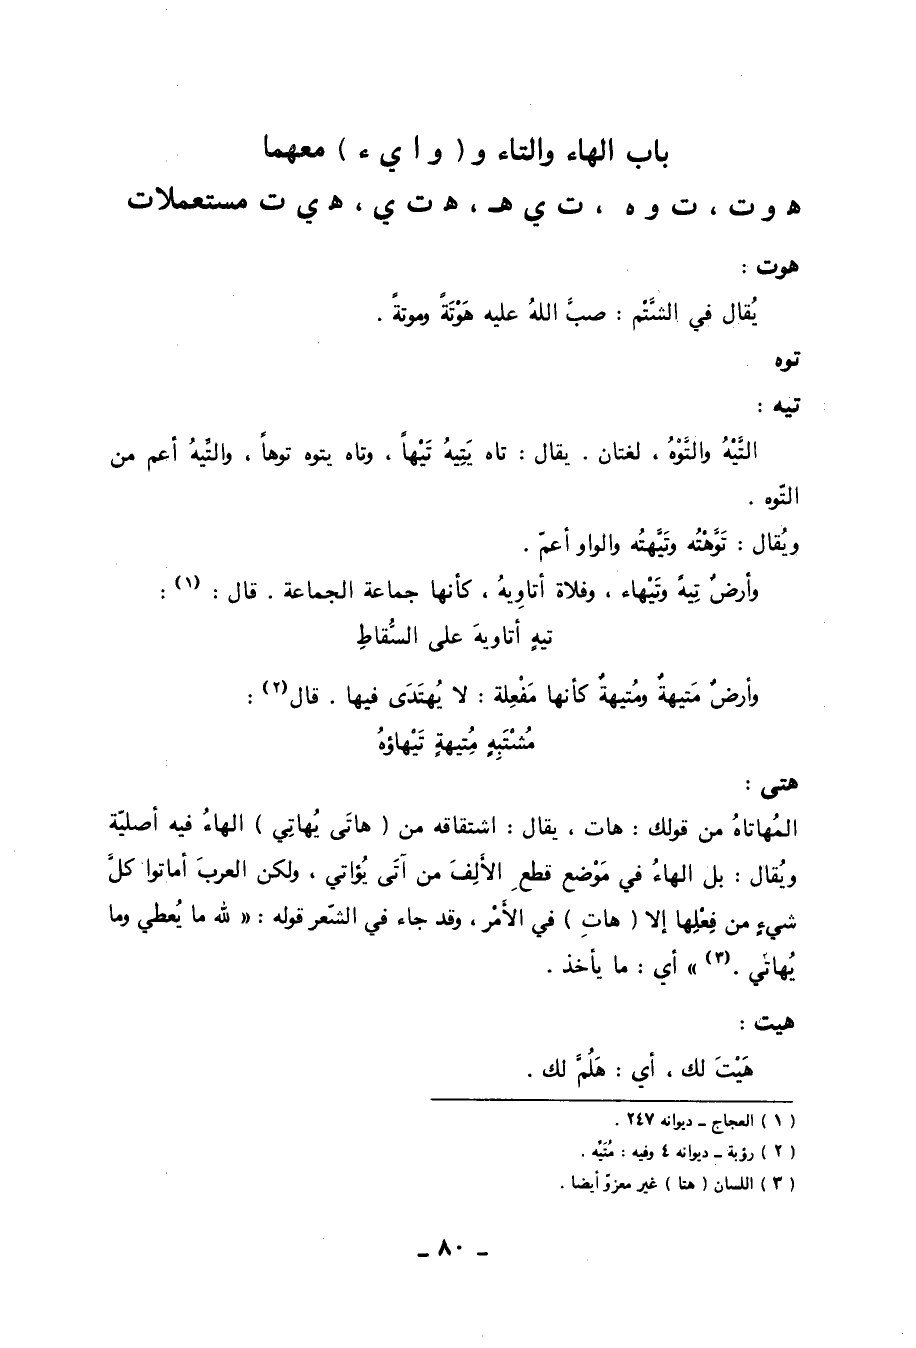 باب الهاء والتاء و ( و ا ي ء ) معهما
ه و ت ، ت و ه ، ت ي هـ ، ه ت ي ، ه ي ت مستعملات
هوت :
يُقال في الشَّتْم : صبَّ اللهُ عليه هَوْتَةً وموتةً .
توه
تيه :
التَّيْهُ والتَّوْهُ ، لغتان . يقال : تاه يَتِيهُ تَيْهاً ، وتاه يتوه توهاً ، والتِّيهُ أعم من
التّوه .
ويُقال : تَوَّهْتُه وتَيَّهتُه والواو أعمّ .
وأرضٌ تِيهٌ وتَيْهاء ، وفلاة أتاوِيهُ ، كأنها جماعة الجماعة . قال : (١) :
تيهِ أتاويهَ على السُّقاطِ
وأرضٌ مَتيهةٌ ومُتيهةٌ كأنها مَفْعِلة : لا يُهتَدَى فيها . قال(٢) :
مُشْتَبِهٍ مُتيهةٍ تَيْهاؤهُ
هتى :
المُهاتاهُ من قولك : هات ، يقال : اشتقاقه من ( هاتَى يُهاتِي ) الهاءُ فيه أصليّة
ويُقال : بل الهاءُ في مَوْضع قطع الألِفَ من آتَى يُؤاتي ، ولكن العربَ أماتوا كلَّ
شيءٍ من فِعْلِها إلا ( هاتِ ) في الأمْر ، وقد جاء في الشّعر قوله : « لله ما يُعطي وما
يُهاتي .(٣) » أي : ما يأخذ .
هيت :
هَيْتَ لك ، أي : هَلُمَّ لك .
( ١ ) العجاج ـ ديوانه ٢٤٧ .
( ٢ ) رؤبة ـ ديوانه ٤ وفيه : مُتَيَّه .
( ٣ ) اللسان ( هتا ) غير معزوّ أيضا .
ـ ٨٠ ـ